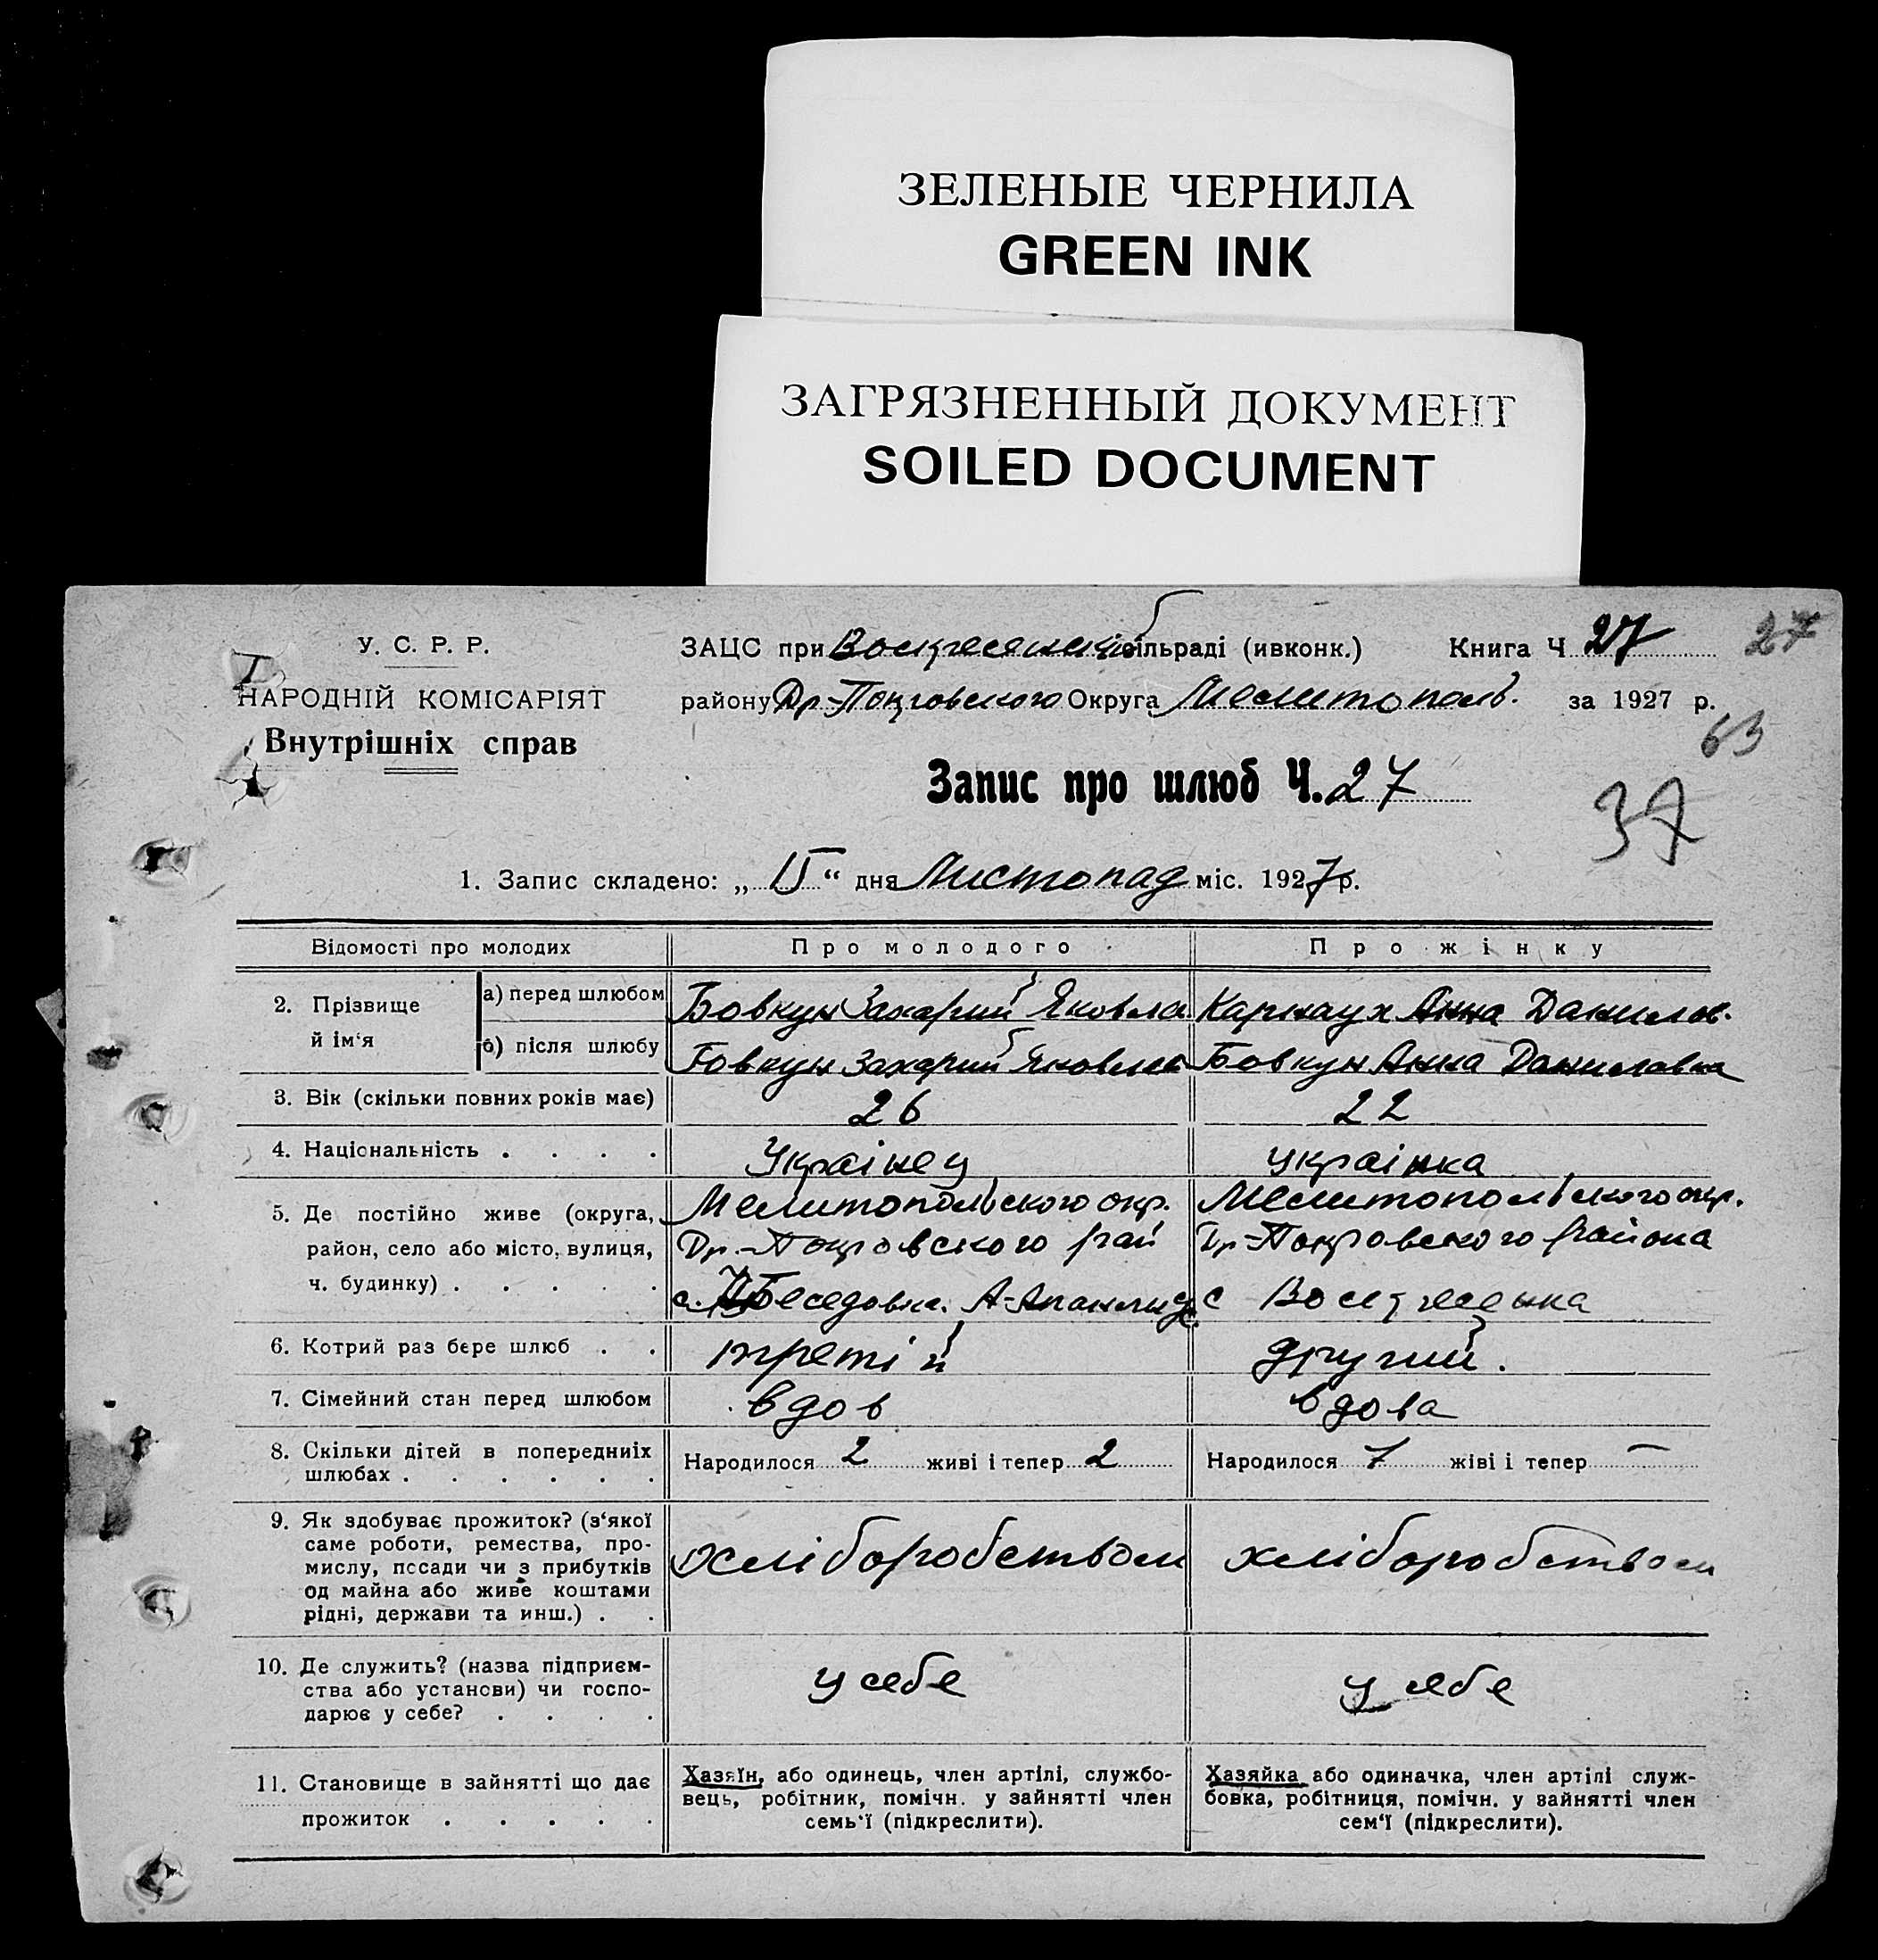 ЗЕЛЕНЫЕ ЧЕРНИЛА
GREEN INK
ЗАГРЯЗНЕННЫЙ ДОКУМЕНТ
SOILED DOCUMENT
У. С. Р. Р.
НАРОДНІЙ КОМІСАРІЯТ
Внутрішніх справ
ЗАЦС при Воскресенській сільраді (ивконк.) Книга Ч 27
27
району Др-Покровского Округа Мелитополь. за 1927 р.
63
Запис про шлюб Ч. 27
37
1. Запис складено: „ 15 “ дня Листопад міс. 1927 р.
Відомості про молодих Про молодого Про жінку
2. Прізвище й ім‘я
а) перед шлюбом Бовкун Захарий Яковле Карнаух Анна Данилов.
б) після шлюбу Бовкун Захарий Яковлев Бовкун Анна Даниловна
3. Вік (скільки повних років має) 26 22
4. Національність . . . . Українец українка
5. Де постійно живе (округа, Мелитопольского окр. Мелитопольского окр.
район, село або місто, вулиця, Др.-Покровского рай Др-Покровского района
ч. будинку) . . . . . с. Беседовка. с Воскресенка
6. Котрий раз бере шлюб . . третій другий.
7. Сімейний стан перед шлюбом вдов вдова
8. Скільки дітей в попередниіх Народилося 2 живі і тепер 2 Народилося 1 жіві і тепер —
шлюбах . . . . . .
9. Як здобуває прожиток? (з‘якої
саме роботи, ремества, про-
мислу, посади чи з прибутків хліборобством хліборобством
од майна або живе коштами
рідні, держави та инш.) . .
10. Де служить? (назва підприєм-
ства або установи) чи госпо- у себе у себе
дарює у себе? . . . .
11. Становище в зайнятті що дає
прожиток . . . . .
Хазяїн, або одинець, член артілі, службо-
вець, робітник, помічн. у зайнятті член
семь‘ї (підкреслити).
Хазяйка або одиначка, член артілі служ-
бовка, робітниця, помічн. у зайнятті член
сем‘ї (підкреслити).